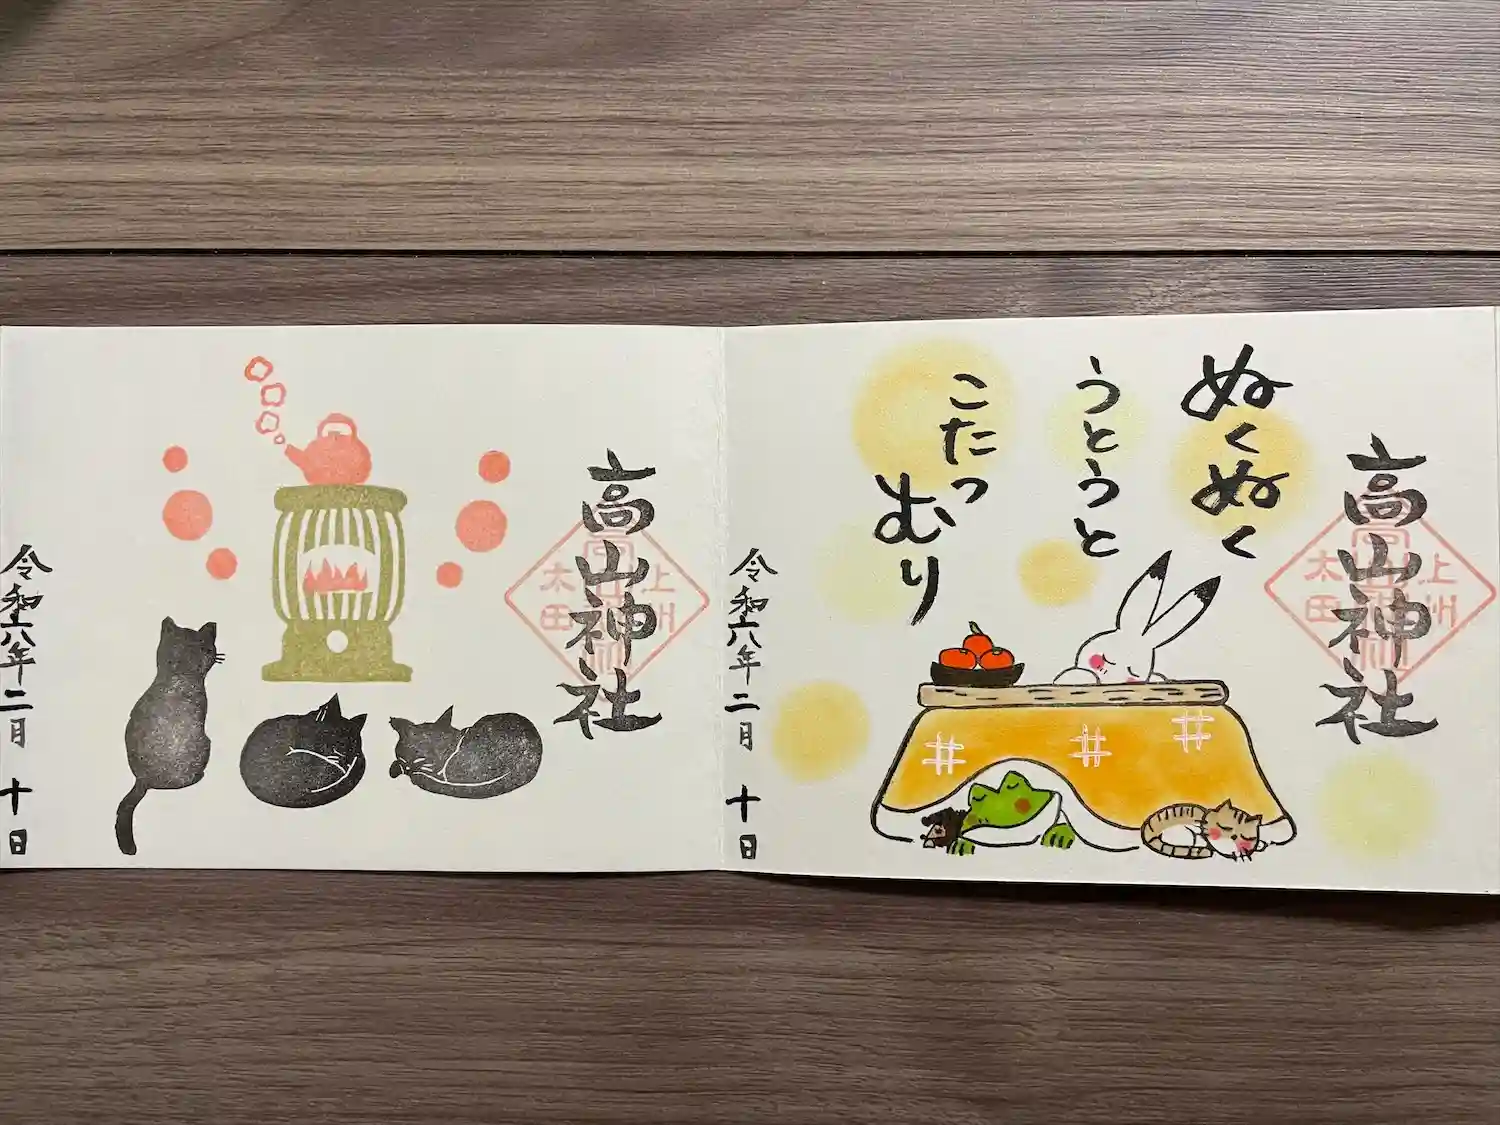 高山神社
上州
太田
ぬくぬく
うとうと
こたつ
むり
令和六年二月十日
高山神社
上州
太田
令和六年二月十日